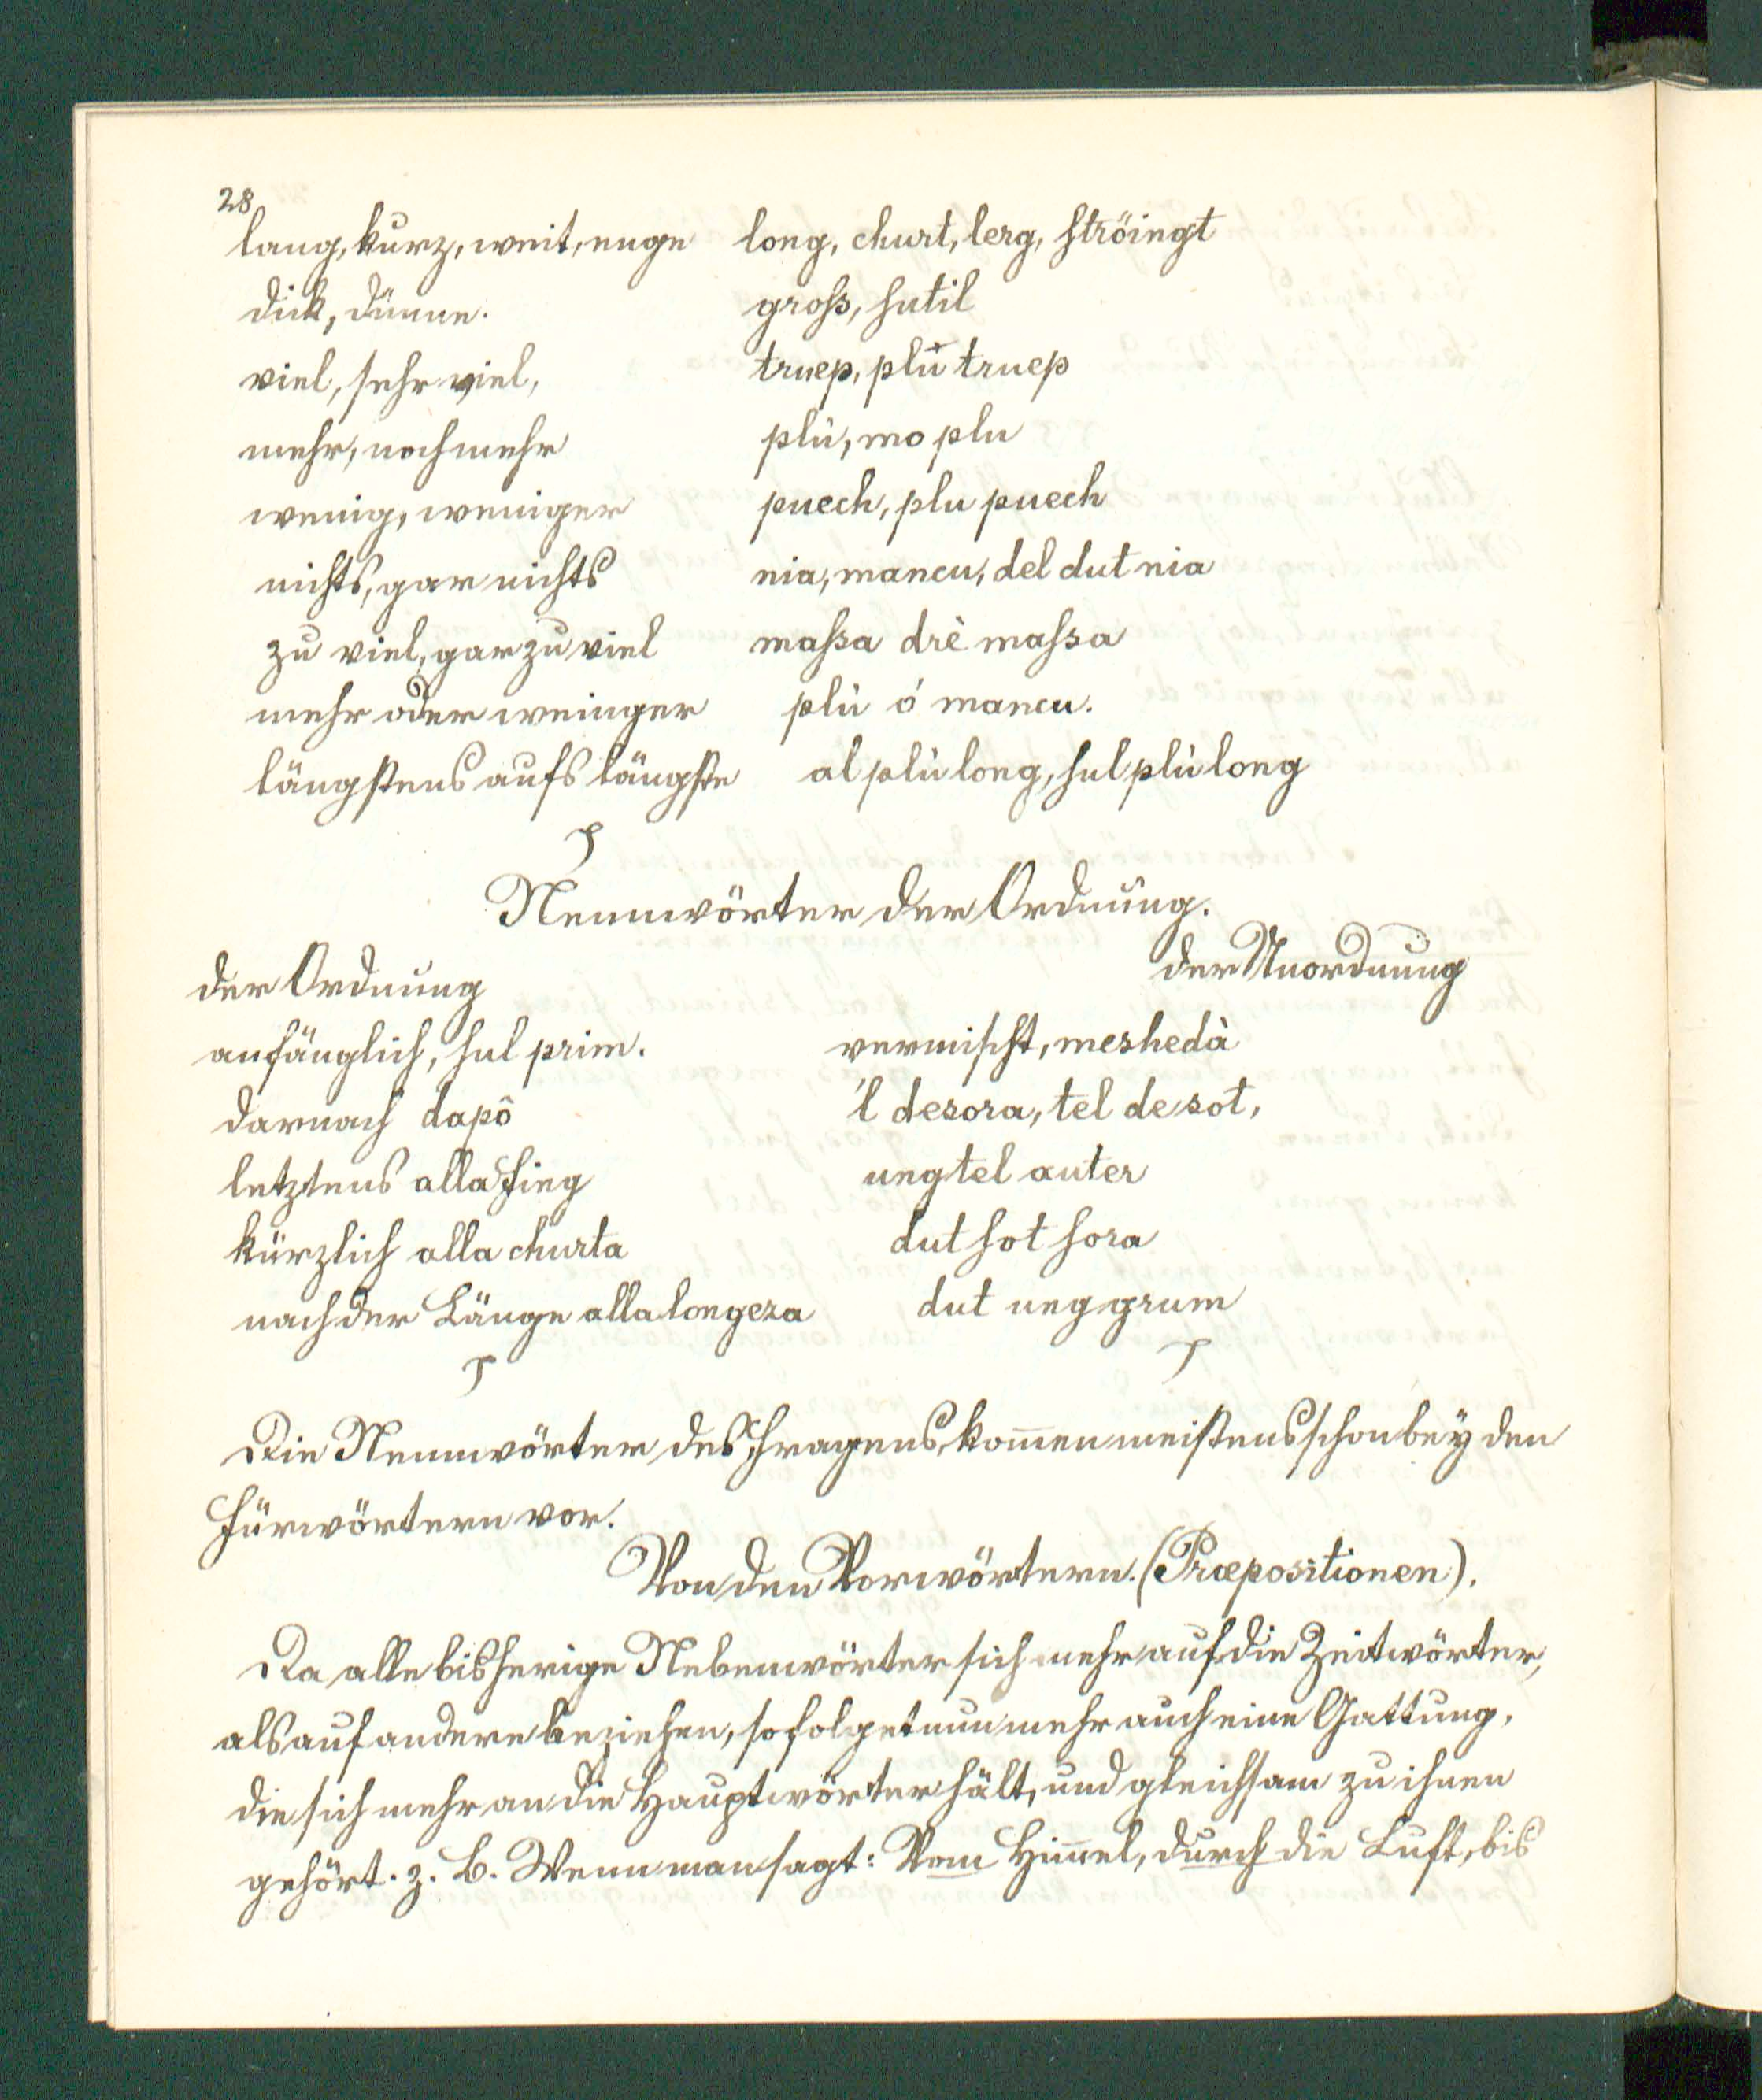 28
lang, kurz, weit, enge long, churt, lerg, ströingt
dick, dünne. groß, sutil
viel, sehr viel, truep, plù truep
mehr, noch mehr plù, mo plu
wenig, weniger puech, plu puech
nichts, gar nichts nia, mancu, del dut nia
zu viel, gar zu viel maßa drè maßa
mehr oder weinger plù ó mancu.
längstens aufs längste al plù long, sul plù long
Nennwörter der Ordnung.
der Ordnung der Unordnung
anfänglich, sul prim. vermischt, meshedà
darnach dapô 'l desora, tel de sot,
letztens alla fing ung tel auter
kürzlich alla churta dut sot sora
nach der Länge alla longeza dut ung grum
Die Nennwörter des Fragens, kom̅en meistens schon beÿ den
Fürwörtern vor.
Von den Vorwörtern. (Præpositionen).
Da alle bisherige Nebenwörter sich mehr auf die Zeitwörter,
als auf andere beziehen, so folget nun mehr auch eine Gattung,
die sich mehr an die Hauptwörter hält, und gleichsam zu ihnen
gehört. z. B. Wenn man sagt: Vom Him̅el, durch die Luft, bis